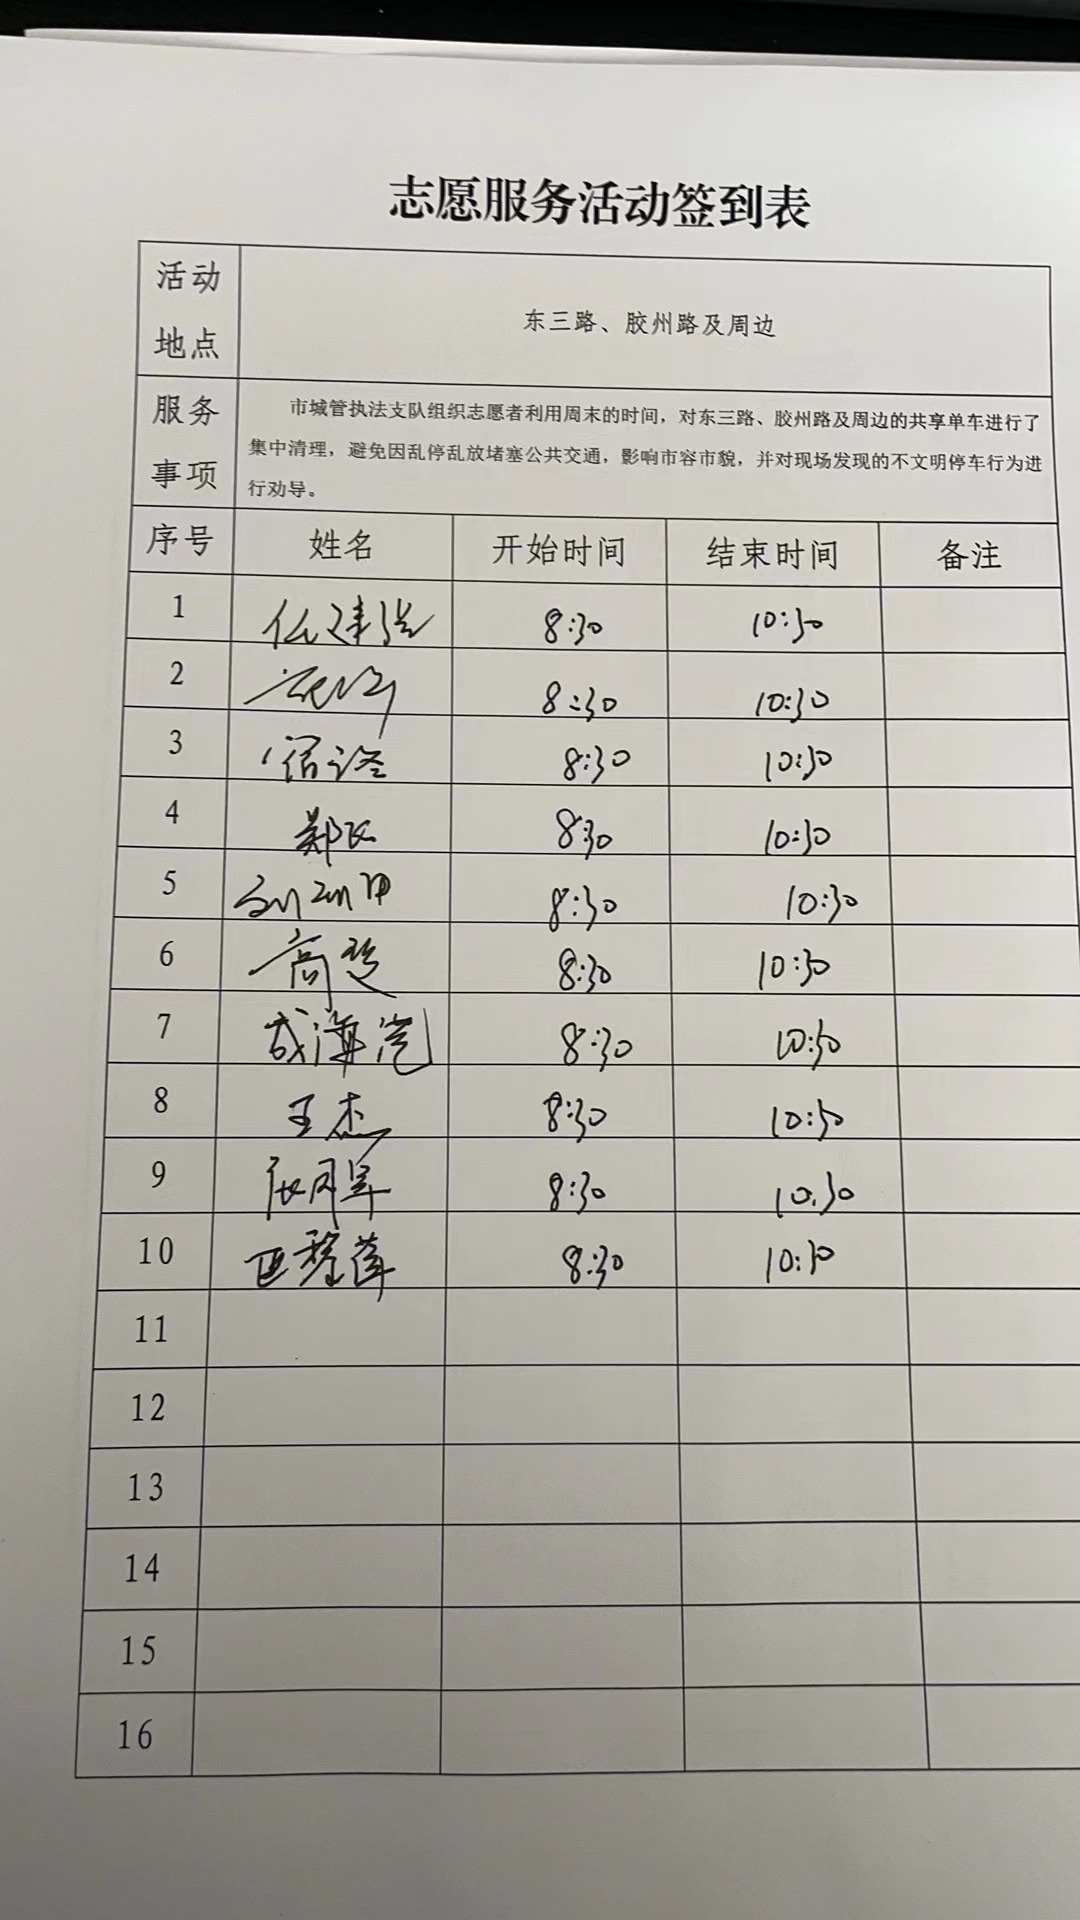 志愿服务活动签到表
活动地点 东三路、胶州路及周边
服务事项 市城管执法支队组织志愿者利用周末的时间，对东三路、胶州路及周边的共享单车进行了
集中清理，避免因乱停乱放堵塞公共交通，影响市容市貌，并对现场发现的不文明停车行为进
行劝导。
序号 姓名 开始时间 结束时间 备注
1 8:30 10:30
2 8:30 10:30
3 8:30 10:30
4 8:30 10:30
5 8:30 10:30
6 高 8:30 10:30
7 成海 8:30 10:30
8 王杰 8:30 10:30
9 8:30 10.30
10 8:30 10:30
11
12
13
14
15
16